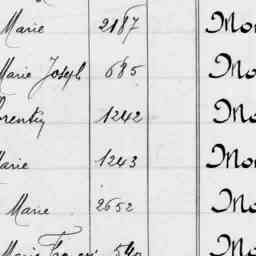 Marie 2187 Mo
Marie Joseph 685 Mo
orentin 1242 Mo
Marie 1243 Mo
Marie 2652 Mo
Marie 540 Mo